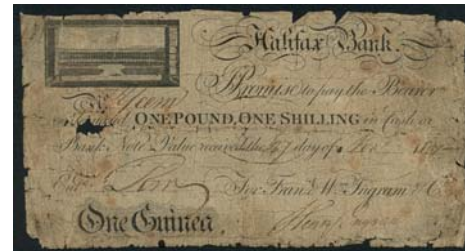 Halifax Bank
I Promise to pay the Bearer
on Demand ONE POUND, ONE SHILLING in Cash or
Bank Note Value received the 7 day of
Ent. For Fran. Wm. Ingram & Co.
One Guinea.